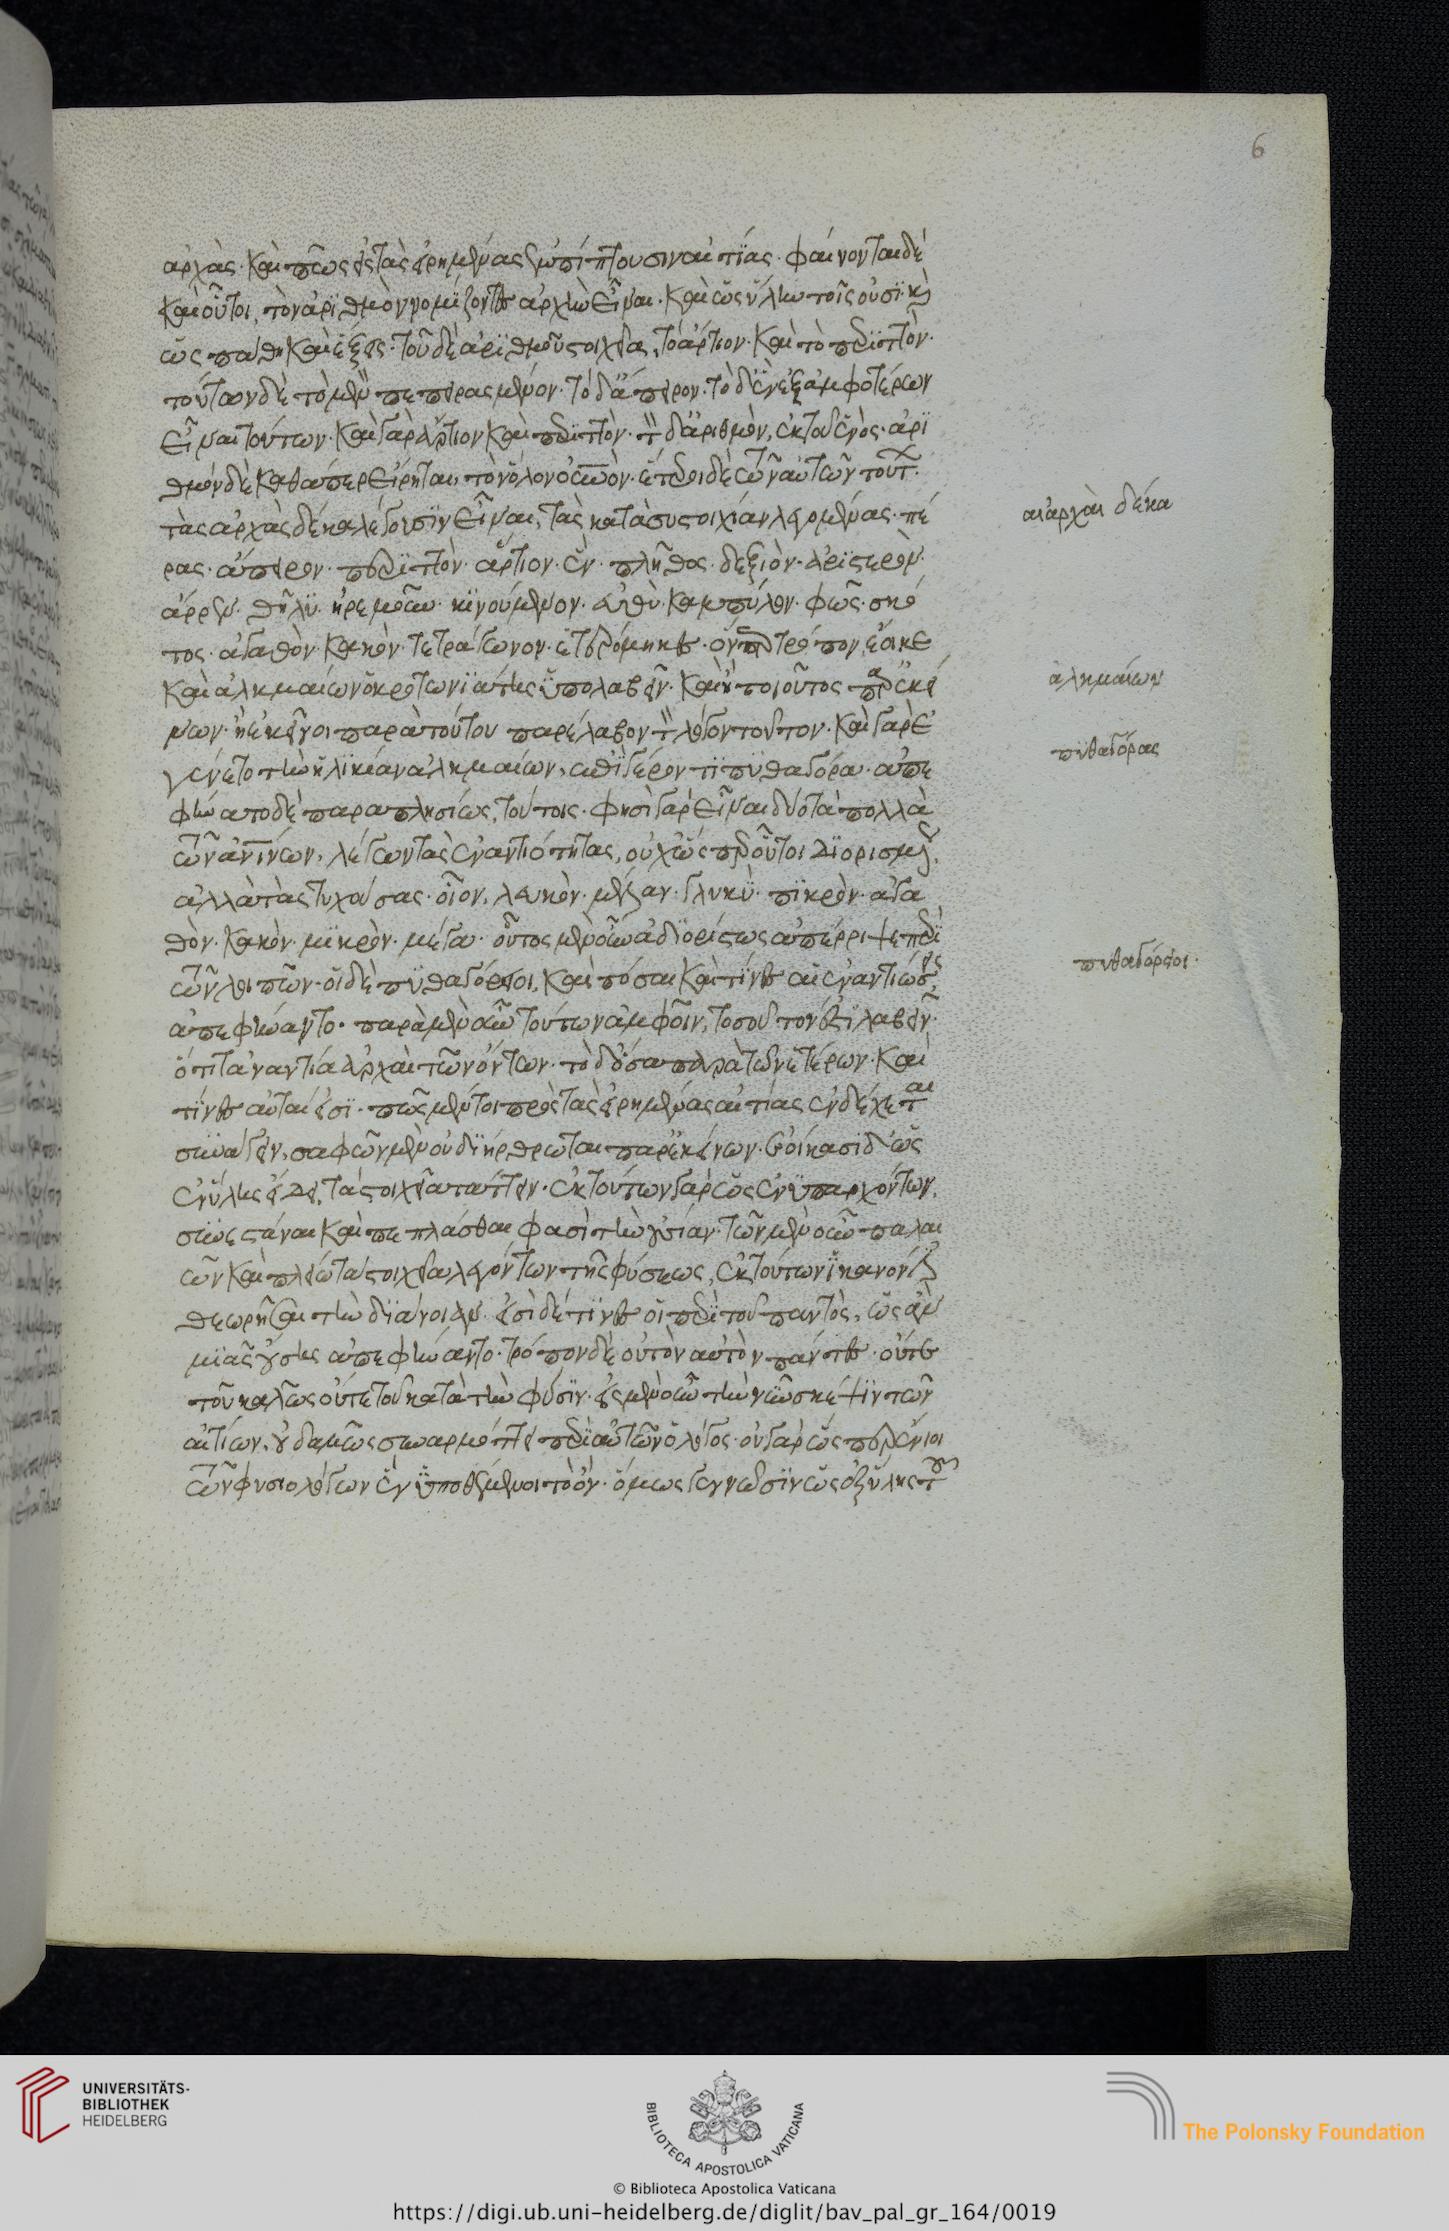 6
ἀρχὰς· καὶ πῶς εἰς τὰς εἰρημένας ἐμπίπτουσιν αἰτίας· φαίνονται δὲ
καὶ οὗτοι, τὸν ἀριθμὸν νομίζοντες ἀρχὴν εἶναι· καὶ ὡς ὕλην τοῖς οὖσι· καὶ
ὡς πάθη καὶ ἕξεις· τοῦ δὲ ἀριθμοῦ στοιχεῖα, τὸ ἄρτιον· καὶ τὸ περιττόν·
τούτων δὲ τὸ μὲν πεπερασμένον· τὸ δ' ἄπειρον· τὸ δ' ἓν ἐξ ἀμφοτέρων
εἶναι τούτων· καὶ γὰρ ἄρτιον καὶ περιττόν· τὸν δ' ἀριθμὸν, ἐκ τοῦ ἑνός· ἀρι
θμὸν δὲ καθάπερ εἴρηται, τὸν ὅλον οὐρανόν· ἕτεροι δὲ τῶν αὐτῶν τούτων
τὰς ἀρχὰς δέκα λέγουσιν εἶναι, τὰς κατὰ συστοιχίαν λεγομένας· πέ
ρας· ἄπειρον· περιττὸν· ἄρτιον· ἓν· πλῆθος· δεξιὸν· ἀριστερὸν·
ἄρρεν· θῆλυ· ἠρεμοῦν· κινούμενον· εὐθὺ· καμπύλον· φῶς· σκό
τος· ἀγαθὸν· κακὸν· τετράγωνον· ἑτερόμηκες· ὅνπερ τρόπον ἔοικε
καὶ ἀλκμαίων ὁ κροτωνιάτης ὑπολαβεῖν· καὶ ἤτοι οὗτος παρ' ἐκεί
νων· ἢ ἐκεῖνοι παρὰ τούτου παρέλαβον τὸν λόγον τοῦτον· καὶ γὰρ ἐ
γένετο τὴν ἡλικίαν ἀλκμαίων, ἐπὶ γέροντι πυθαγόρα· ἀπε
φήνατο δὲ παραπλησίως, τούτοις· φησὶ γὰρ εἶναι δύο τὰ πολλὰ
τῶν ἀνθρωπίνων, λέγων τὰς ἐναντιότητας, οὐχ ὥσπερ οὗτοι διορισμέν
ἀλλὰ τὰς τυχούσας· οἷον, λευκὸν· μέλαν· γλυκὺ· πικρὸν· ἀγα
θὸν· κακὸν· μικρὸν· μέγα· οὗτος μὲν οὖν ἀδιορίστως ἀπέρριψε περὶ
τῶν λοιπῶν· οἱ δὲ πυθαγόρειοι, καὶ πόσαι καὶ τίνες αἱ ἐναντιώσεις
ἀπεφήναντο· παρὰ μὲν οὖν τούτων ἀμφοῖν, τοσοῦτον ἔστι λαβεῖν·
ὅτι τἀναντία ἀρχαὶ τῶν ὄντων· τὸ δ' ὅσαι παρὰ τῶν ἑτέρων· καὶ
τίνες αὗταί εἰσι· πῶς μέντοι πρὸς τὰς εἰρημένας αἰτίας ἐνδέχεται
συνάγειν, σαφῶς μὲν οὐ διήρθρωται παρ' ἐκείνων· ἐοίκασι δ' ὡς
ἐν ὕλης εἴδει, τὰ στοιχεῖα τάττειν· ἐκ τούτων γὰρ ὡς ἐνυπαρχόντων,
συνεστάναι καὶ πεπλάσθαι φασὶ τὴν οὐσίαν· τῶν μὲν οὖν παλαι
ῶν καὶ πλείω τὰ στοιχεῖα λεγόντων τῆς φύσεως, ἐκ τούτων ἱκανόν ἐστι
θεωρῆσαι τὴν διάνοιαν· εἰσὶ δέ τινες οἳ περὶ τοῦ παντὸς, ὡς ἂν
μιᾶς οὔσης ἀπεφήναντο· τρόπον δὲ οὐ τὸν αὐτὸν πάντες· οὔτε
τοῦ καλῶς οὔτε τοῦ κατὰ τὴν φύσιν· εἰς μὲν οὖν τὴν νῦν σκέψιν τῶν
αἰτίων, οὐδαμῶς συναρμόττει περὶ αὐτῶν ὁ λόγος· οὐ γὰρ ὥσπερ ἔνιοι
τῶν φυσιολόγων ἓν ὑποθέμενοι τὸ ὄν· ὅμως γεννῶσιν ὡς ἐξ ὕλης τοῦ
αἱ ἀρχαὶ δέκα
ἀλκμαίων
πυθαγόρας
πυθαγόρειοι·
UNIVERSITÄTS-
BIBLIOTHEK
HEIDELBERG
BIBLIOTECA APOSTOLICA VATICANA
© Biblioteca Apostolica Vaticana
The Polonsky Foundation
https://digi.ub.uni-heidelberg.de/diglit/bav_pal_gr_164/0019